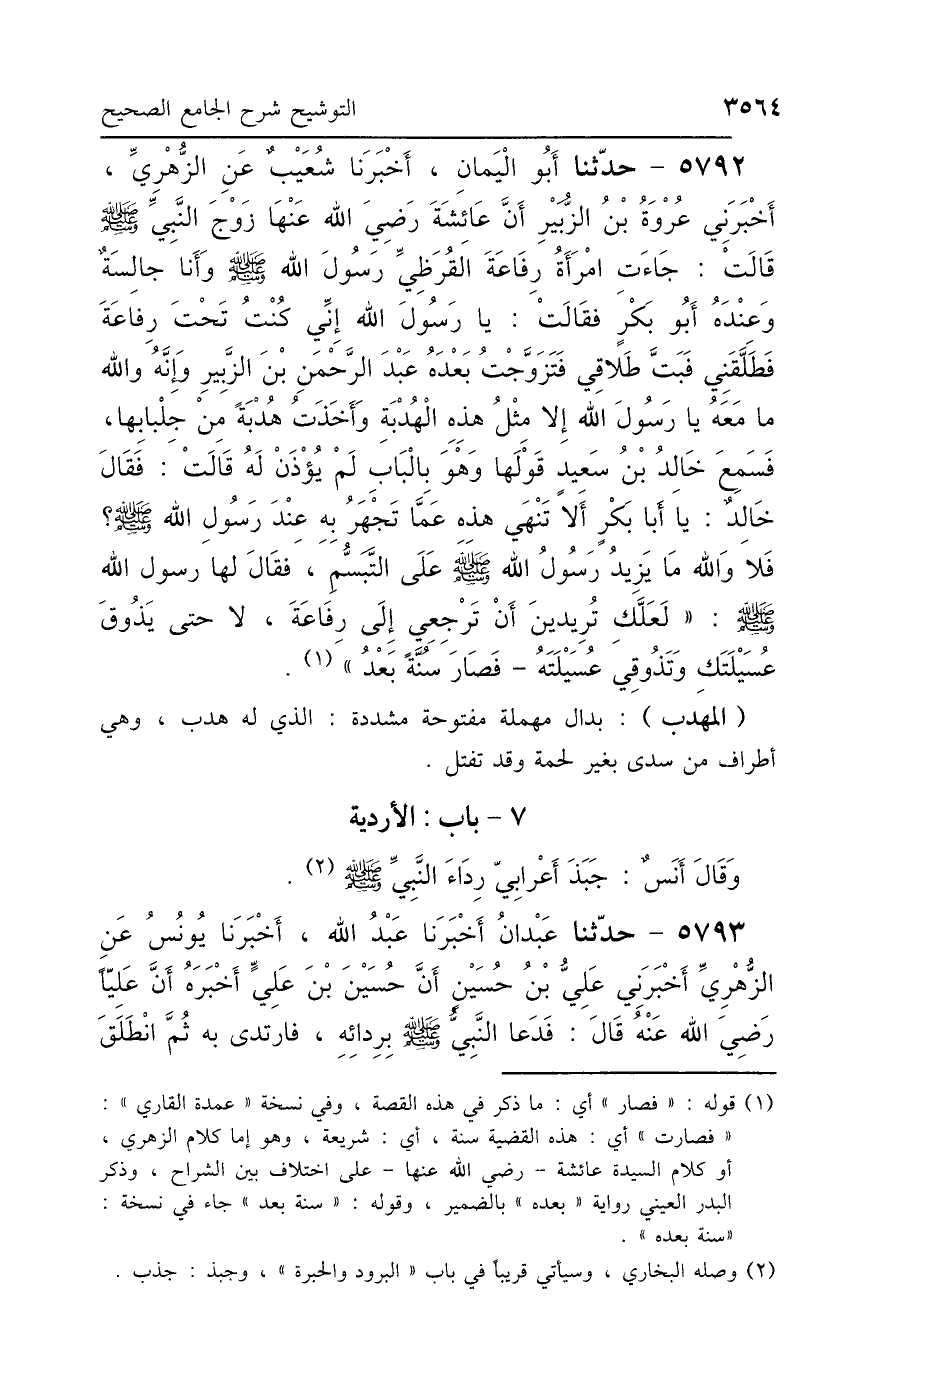 ٣٥٦٤ التوشيح شرح الجامع الصحيح
٥٧٩٢ - حدّثنا أَبُو الْيَمانِ ، أَخْبَرَنَا شُعَيْبٌ عَنِ الزُّهْرِيِّ ،
أَخْبَرَنِي عُرْوَةُ بْنُ الزُّبَيْرِ أَنَّ عَائِشَةَ رَضِيَ الله عَنْهَا زَوْجَ النَّبِيِّ ﷺ
قَالَتْ : جَاءَتِ امْرَأَةُ رِفَاعَةَ القُرَظِيِّ رَسُولَ الله ﷺ وَأَنا جالِسَةٌ
وَعِنْدَهُ أَبُو بَكْرٍ فقَالَتْ : يا رَسُولَ الله إِنِّي كُنْتُ تَحْتَ رِفاعَةَ
فَطَلَّقَنِي فَبَتَّ طَلَاقِي فَتَزَوَّجْتُ بَعْدَهُ عَبْدَ الرَّحْمَنِ بْنَ الزَّبِيرِ وَإِنَّهُ والله
ما مَعَهُ يا رَسُولَ الله إلا مثْلُ هذه الْهُدْبَةِ وَأَخَذَتْ هُدْبَةً منْ جِلْبابها،
فَسَمِعَ خَالِدُ بْنُ سَعِيدٍ قَوْلَها وَهْوَ بِالْبَابِ لَمْ يُؤْذَنْ لَهُ قَالَتْ : فَقَالَ
خَالِدٌ : يا أَبا بَكْرٍ أَلاَ تَنْهَي هذِهِ عَمَّا تَجْهَرُ بِهِ عِنْدَ رَسُولِ الله ﷺ؟
فَلا وَالله مَا يَزِيدُ رَسُولُ الله ﷺ عَلَى التَّبَسُّمِ ، فقَالَ لها رسول الله
ﷺ : « لَعَلَّكِ تُرِيدينَ أَنْ تَرْجِعِي إِلَى رِفَاعَةَ ، لا حتى يَذُوقَ
عُسَيْلَتَكِ وَتَذُوقِي عُسَيْلَتَهُ - فَصَارَ سُنَّةً بَعْدُ » (١) .
( المهدب ) : بدال مهملة مفتوحة مشددة : الذي له هدب ، وهي
أطراف من سدى بغير لحمة وقد تفتل .
٧ - باب : الأردية
وَقَالَ أَنَسٌ : جَبَذَ أَعْرابِيّ رِدَاءَ النَّبِيِّ ﷺ (٢) .
٥٧٩٣ - حدّثنا عَبْدانُ أَخْبَرَنَا عَبْدُ الله ، أَخْبَرَنَا يُونُسُ عَنِ
الزُّهْرِيِّ أَخْبَرَنِي عَلِيُّ بْنُ حُسَيْنٍ أَنَّ حُسَيْنَ بْنَ عَلِيٍّ أَخْبَرَهُ أَنَّ عَلِيّاً
رَضِيَ الله عَنْهُ قَالَ : فَدَعا النَّبِيُّ ﷺ بِرِدائِهِ ، فارتدى به ثُمَّ انْطَلَقَ
(١) قوله : « فصار » أي : ما ذكر في هذه القصة ، وفي نسخة « عمدة القاري » :
« فصارت » أي : هذه القضية سنة ، أي : شريعة ، وهو إما كلام الزهري ،
أو كلام السيدة عائشة - رضي الله عنها - على اختلاف بين الشراح ، وذكر
البدر العيني رواية « بعده » بالضمير ، وقوله : « سنة بعد » جاء في نسخة :
«سنة بعده » .
(٢) وصله البخاري ، وسيأتي قريباً في باب « البرود والحبرة » ، وجبذ : جذب .